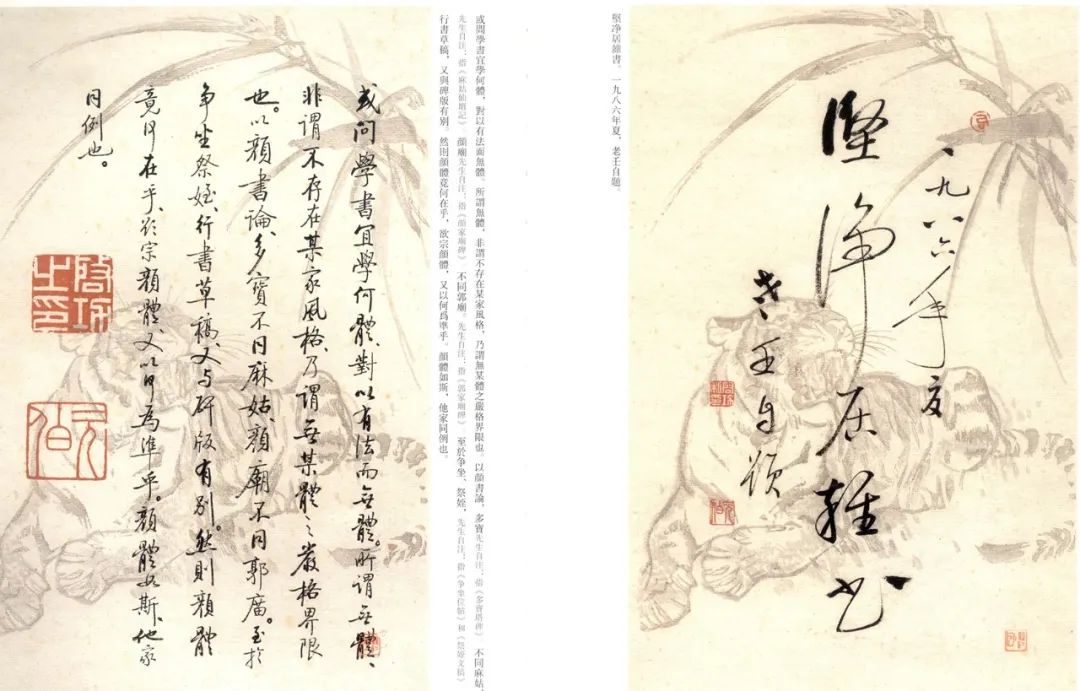 一九八六年夏
堅净居雜書
老壬自題
堅净居雜書。一九八六年夏,老壬自題。
或問學書宜學何體,對以有法而無體。所謂無體,非謂不存在某家風格,乃謂無某體之嚴格界限也。以顔書論,多寶先生自注:指《多寶塔碑》 不同麻姑,
先生自注:指《麻姑仙壇記》。顔廟先生自注:指《顔家廟碑》 不同郭廟。先生自注:指《郭家廟碑》 至於争坐、祭姪,先生自注:指《争坐位帖》和《祭姪文稿》
行書草稿,又與碑版有别。然則顔體竟何在乎,欲宗顔體,又以何爲準乎。顔體如斯,他家同例也。
或问學書宜學何體、對以有法而無體。所谓無體、
非謂不存在某家風格、乃謂無某體之嚴格界限
也。以顔書論、多寶不同麻姑、顔廟不同郭廟。至於
争坐祭姪、行書草稿、又与碑版有别。然則顔體
竟何在乎、欲宗顔體、又以何為準乎。顔體如斯、他家
同例也。
啓功之印
元白